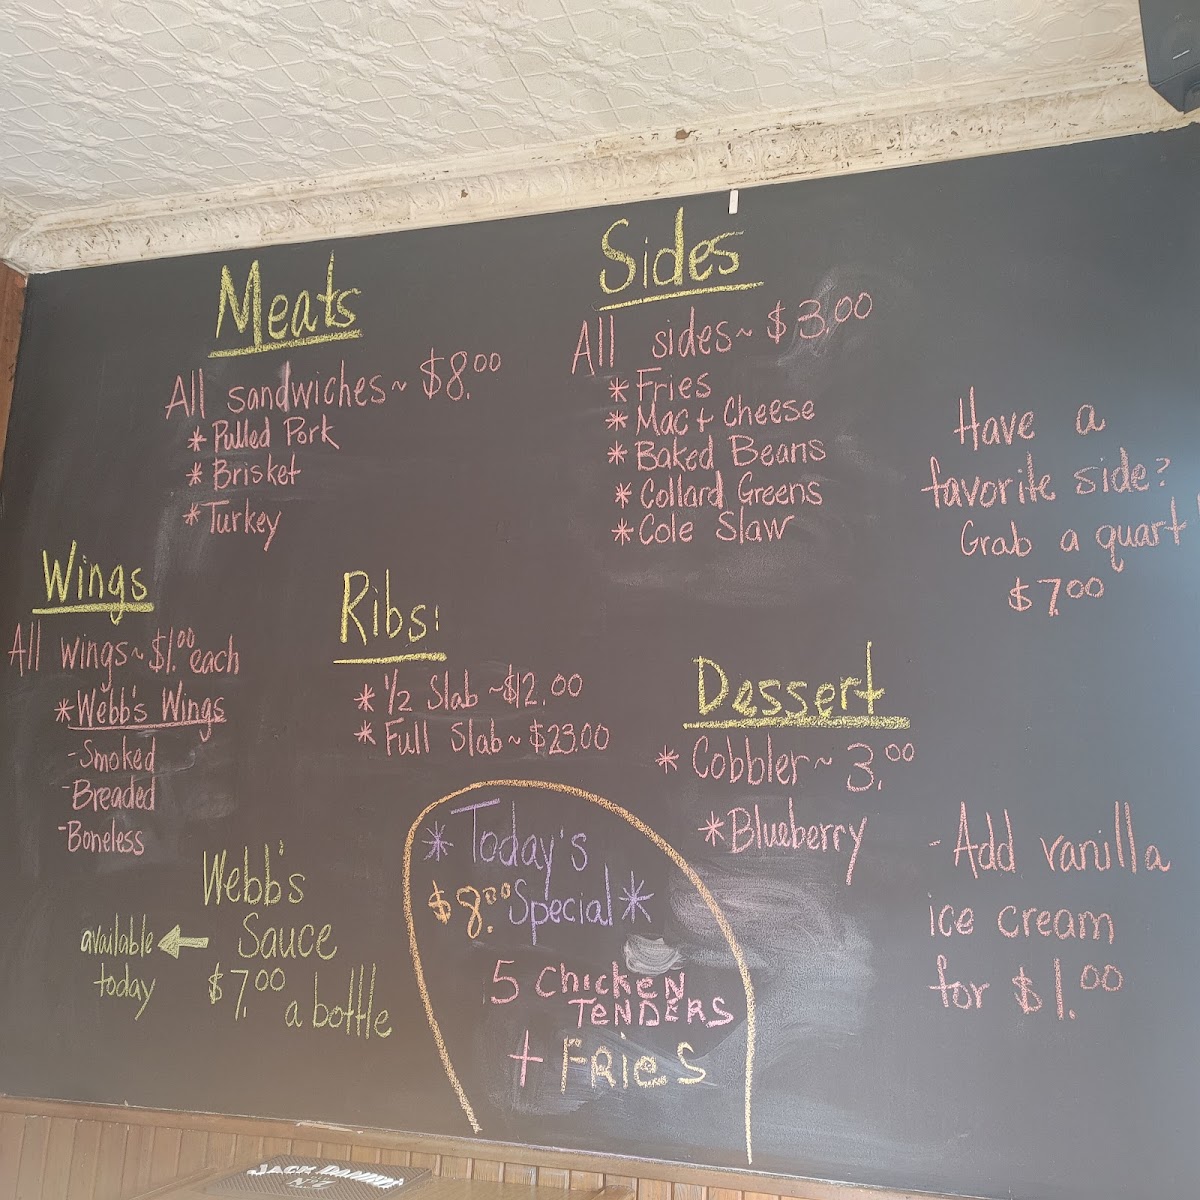 Meats
All sandwiches ~ $8.00
* Pulled Pork
* Brisket
* Turkey
Sides
All sides ~ $3.00
* Fries
* Mac + Cheese
* Baked Beans
* Collard Greens
* Cole Slaw
Have a
favorite side?
Grab a quart
$7.00
Wings
All wings ~ $1.00 each
* Webb's Wings
- Smoked
- Breaded
- Boneless
Ribs:
* 1/2 Slab ~ $12.00
* Full Slab ~ $23.00
Dessert
* Cobbler ~ 3.00
* Blueberry
- Add vanilla
ice cream
for $1.00
Webb's
Sauce
$7.00
a bottle
available
today
* Today's
$8.00 Special *
5 Chicken
TeNDERS
+ FRieS
JACK DANIEL'S
Nº7